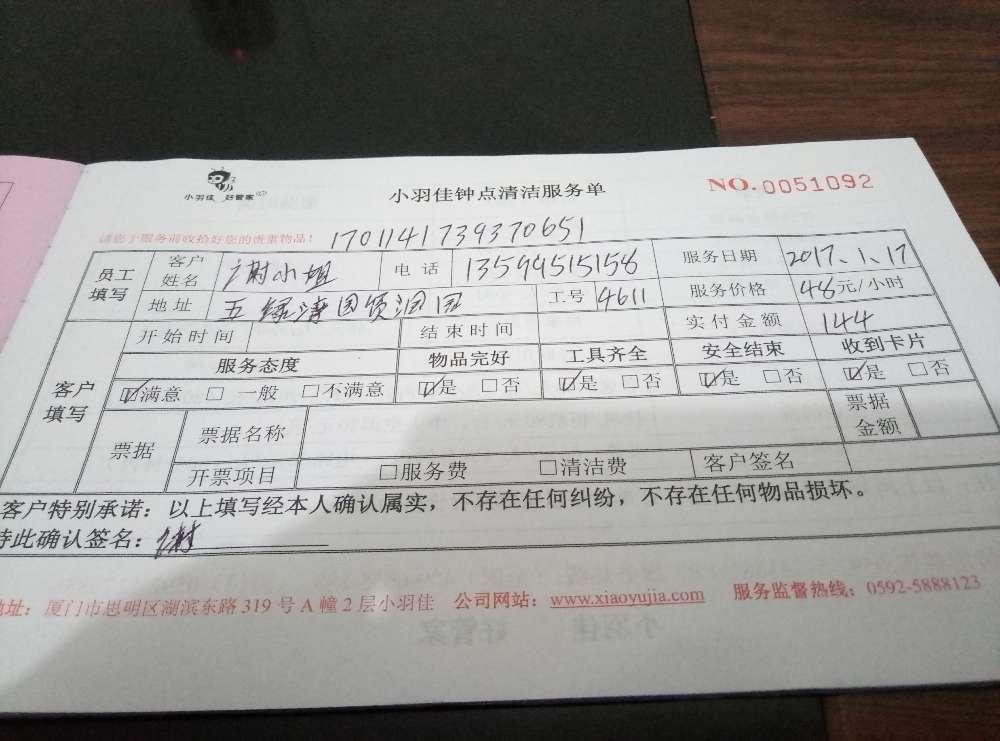 小羽佳 好管家
小羽佳钟点清洁服务单
NO.0051092
请您于服务前收拾好您的贵重物品！ 1701141739370651
员工填写 客户姓名 谢小姐 电话 13599515158 服务日期 2017.1.17
地址 五缘湾国贸润园 工号 4611 服务价格 48元/小时
客户填写 开始时间 结束时间 实付金额 144
服务态度 物品完好 工具齐全 安全结束 收到卡片
☑满意 □ 一般 □不满意 ☑是 □否 ☑是 □否 ☑是 □否 ☑是 □否
票据 票据名称 票据金额
开票项目 □服务费 □清洁费 客户签名
客户特别承诺：以上填写经本人确认属实，不存在任何纠纷，不存在任何物品损坏。
特此确认签名：谢
地址：厦门市思明区湖滨东路 319 号 A 幢 2 层小羽佳 公司网站：www.xiaoyujia.com 服务监督热线：0592-5888123